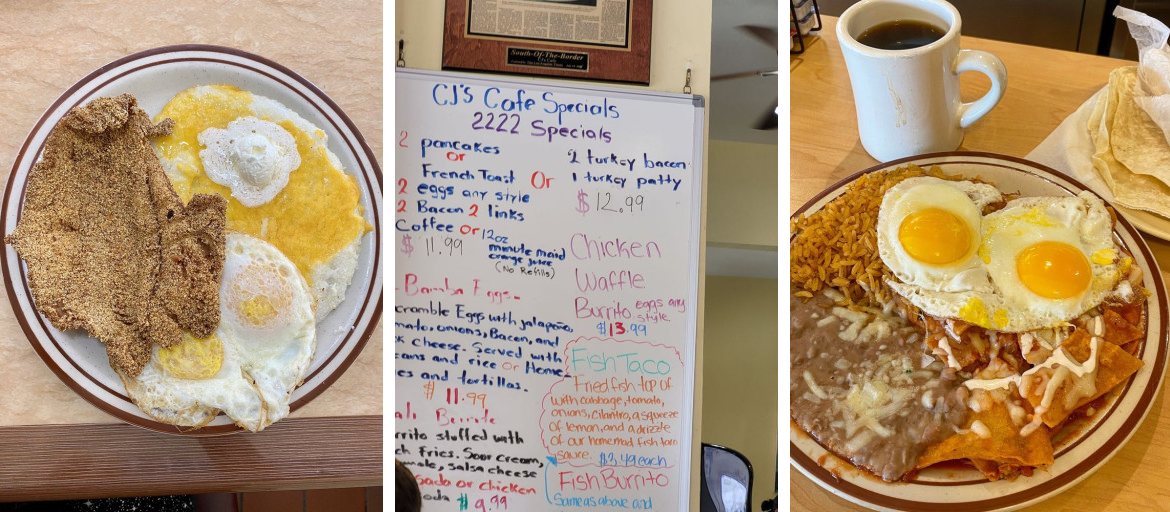 South-Of-The-Border
CJ's Cafe Specials
2222 Specials
2 pancakes
or
French Toast Or
2 eggs any style
2 Bacon 2 links
Coffee or 12oz
minute maid
orange juice
(No Refills)
$ 11.99
2 turkey bacon
1 turkey patty
$12.99
Bamba Eggs
cramble Eggs with jalapeno,
mato, onions, Bacon, and
k cheese. Served with
eans and rice or Home
es and tortillas.
$ 11.99
Burrito
rrito stuffed with
ch Fries. Sour Cream,
male, salsa cheese
sada or chicken
oda $ 9.99
Chicken
Waffle
Burrito eggs any
style
$13.99
Fish Taco
Fried fish top of
with cabbage, tomato,
onions, cilantro, a squeeze
of lemon, and a drizzle
of our homemad fish taco
sauce. $3.49 each
Fish Burrito
Same as above and